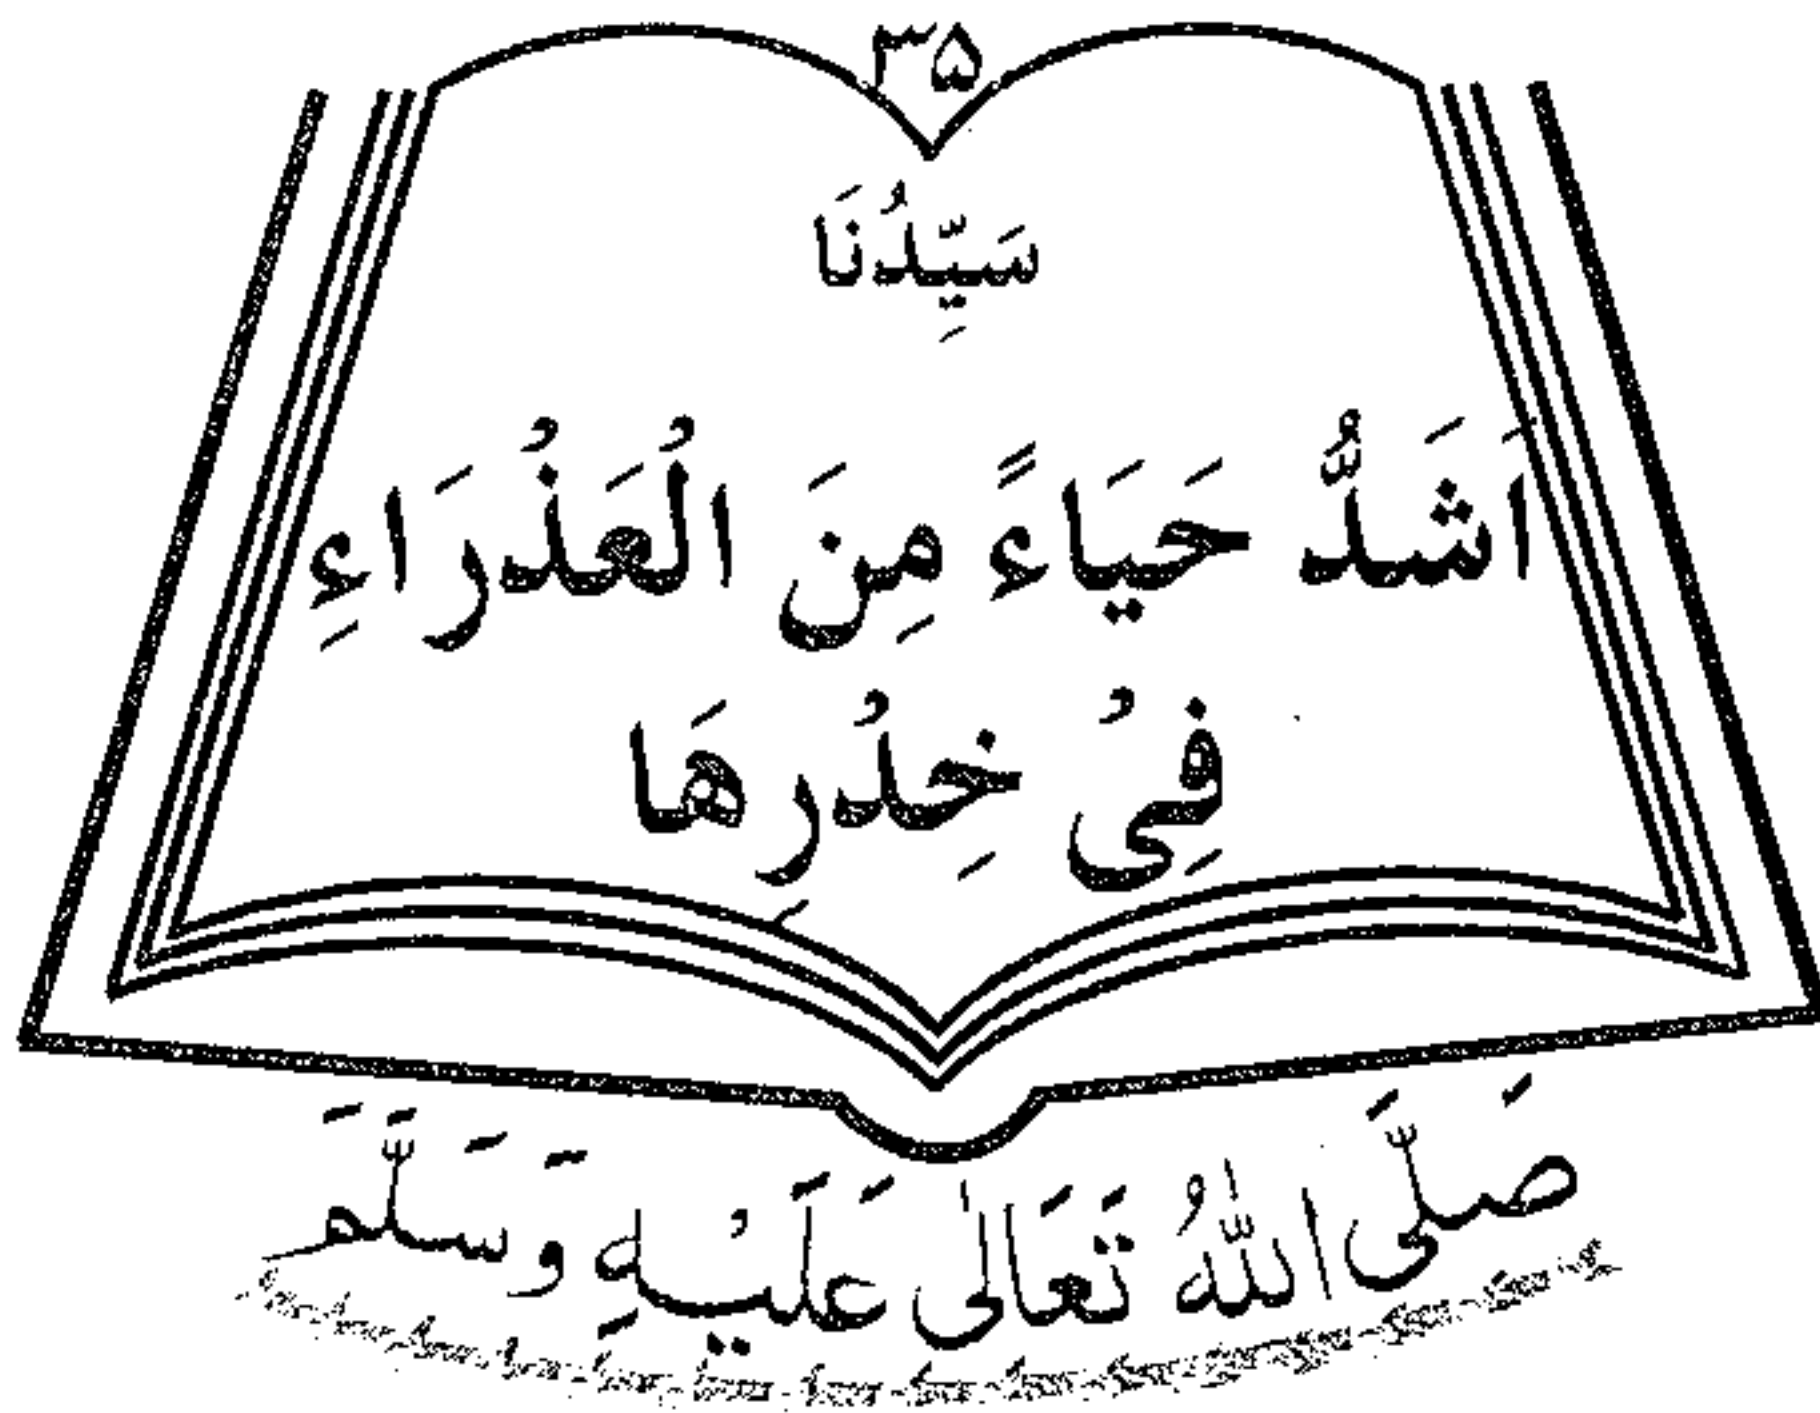 ۳۵
سَيِّدُنَا
اَشَدُّ حَيَاءً مِنَ الْعَذْرَاءِ
فِىْ خِدْرِهَا
صَلَّى اللّٰهُ تَعَالٰى عَلَيْهِ وَسَلَّمَ